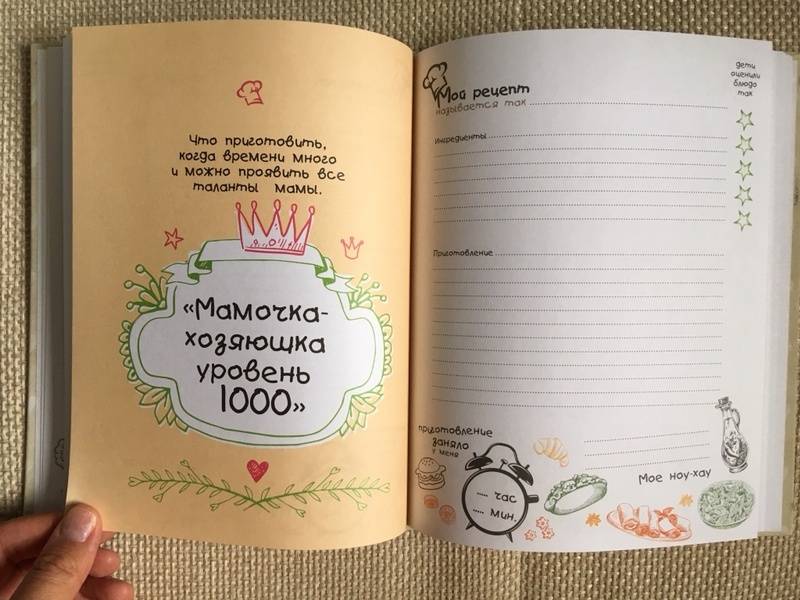 Что приготовить,
когда времени много
и можно проявить все
таланты мамы.
«Мамочка-
хозяюшка
уровень
1000»
Мой рецепт
называется так
дети
оценили
блюдо
так
Ингредиенты
Приготовление
приготовление
заняло
у меня
час
мин.
Мое ноу-хау